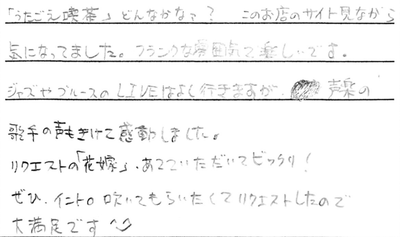 「うたごえ喫茶」どんなかな?って? このお店のサイト見ながら
気になってました。フランクな雰囲気で楽しいです。
ジャズやブルースのLIVEはよく行きますが、声楽の
歌手の声もきけて感動しました。
リクエストの「花嫁」、あてこいただいてピッタリ!
ぜひ、イントロ吹いてもらいたくてリクエストしたので
大満足です^^